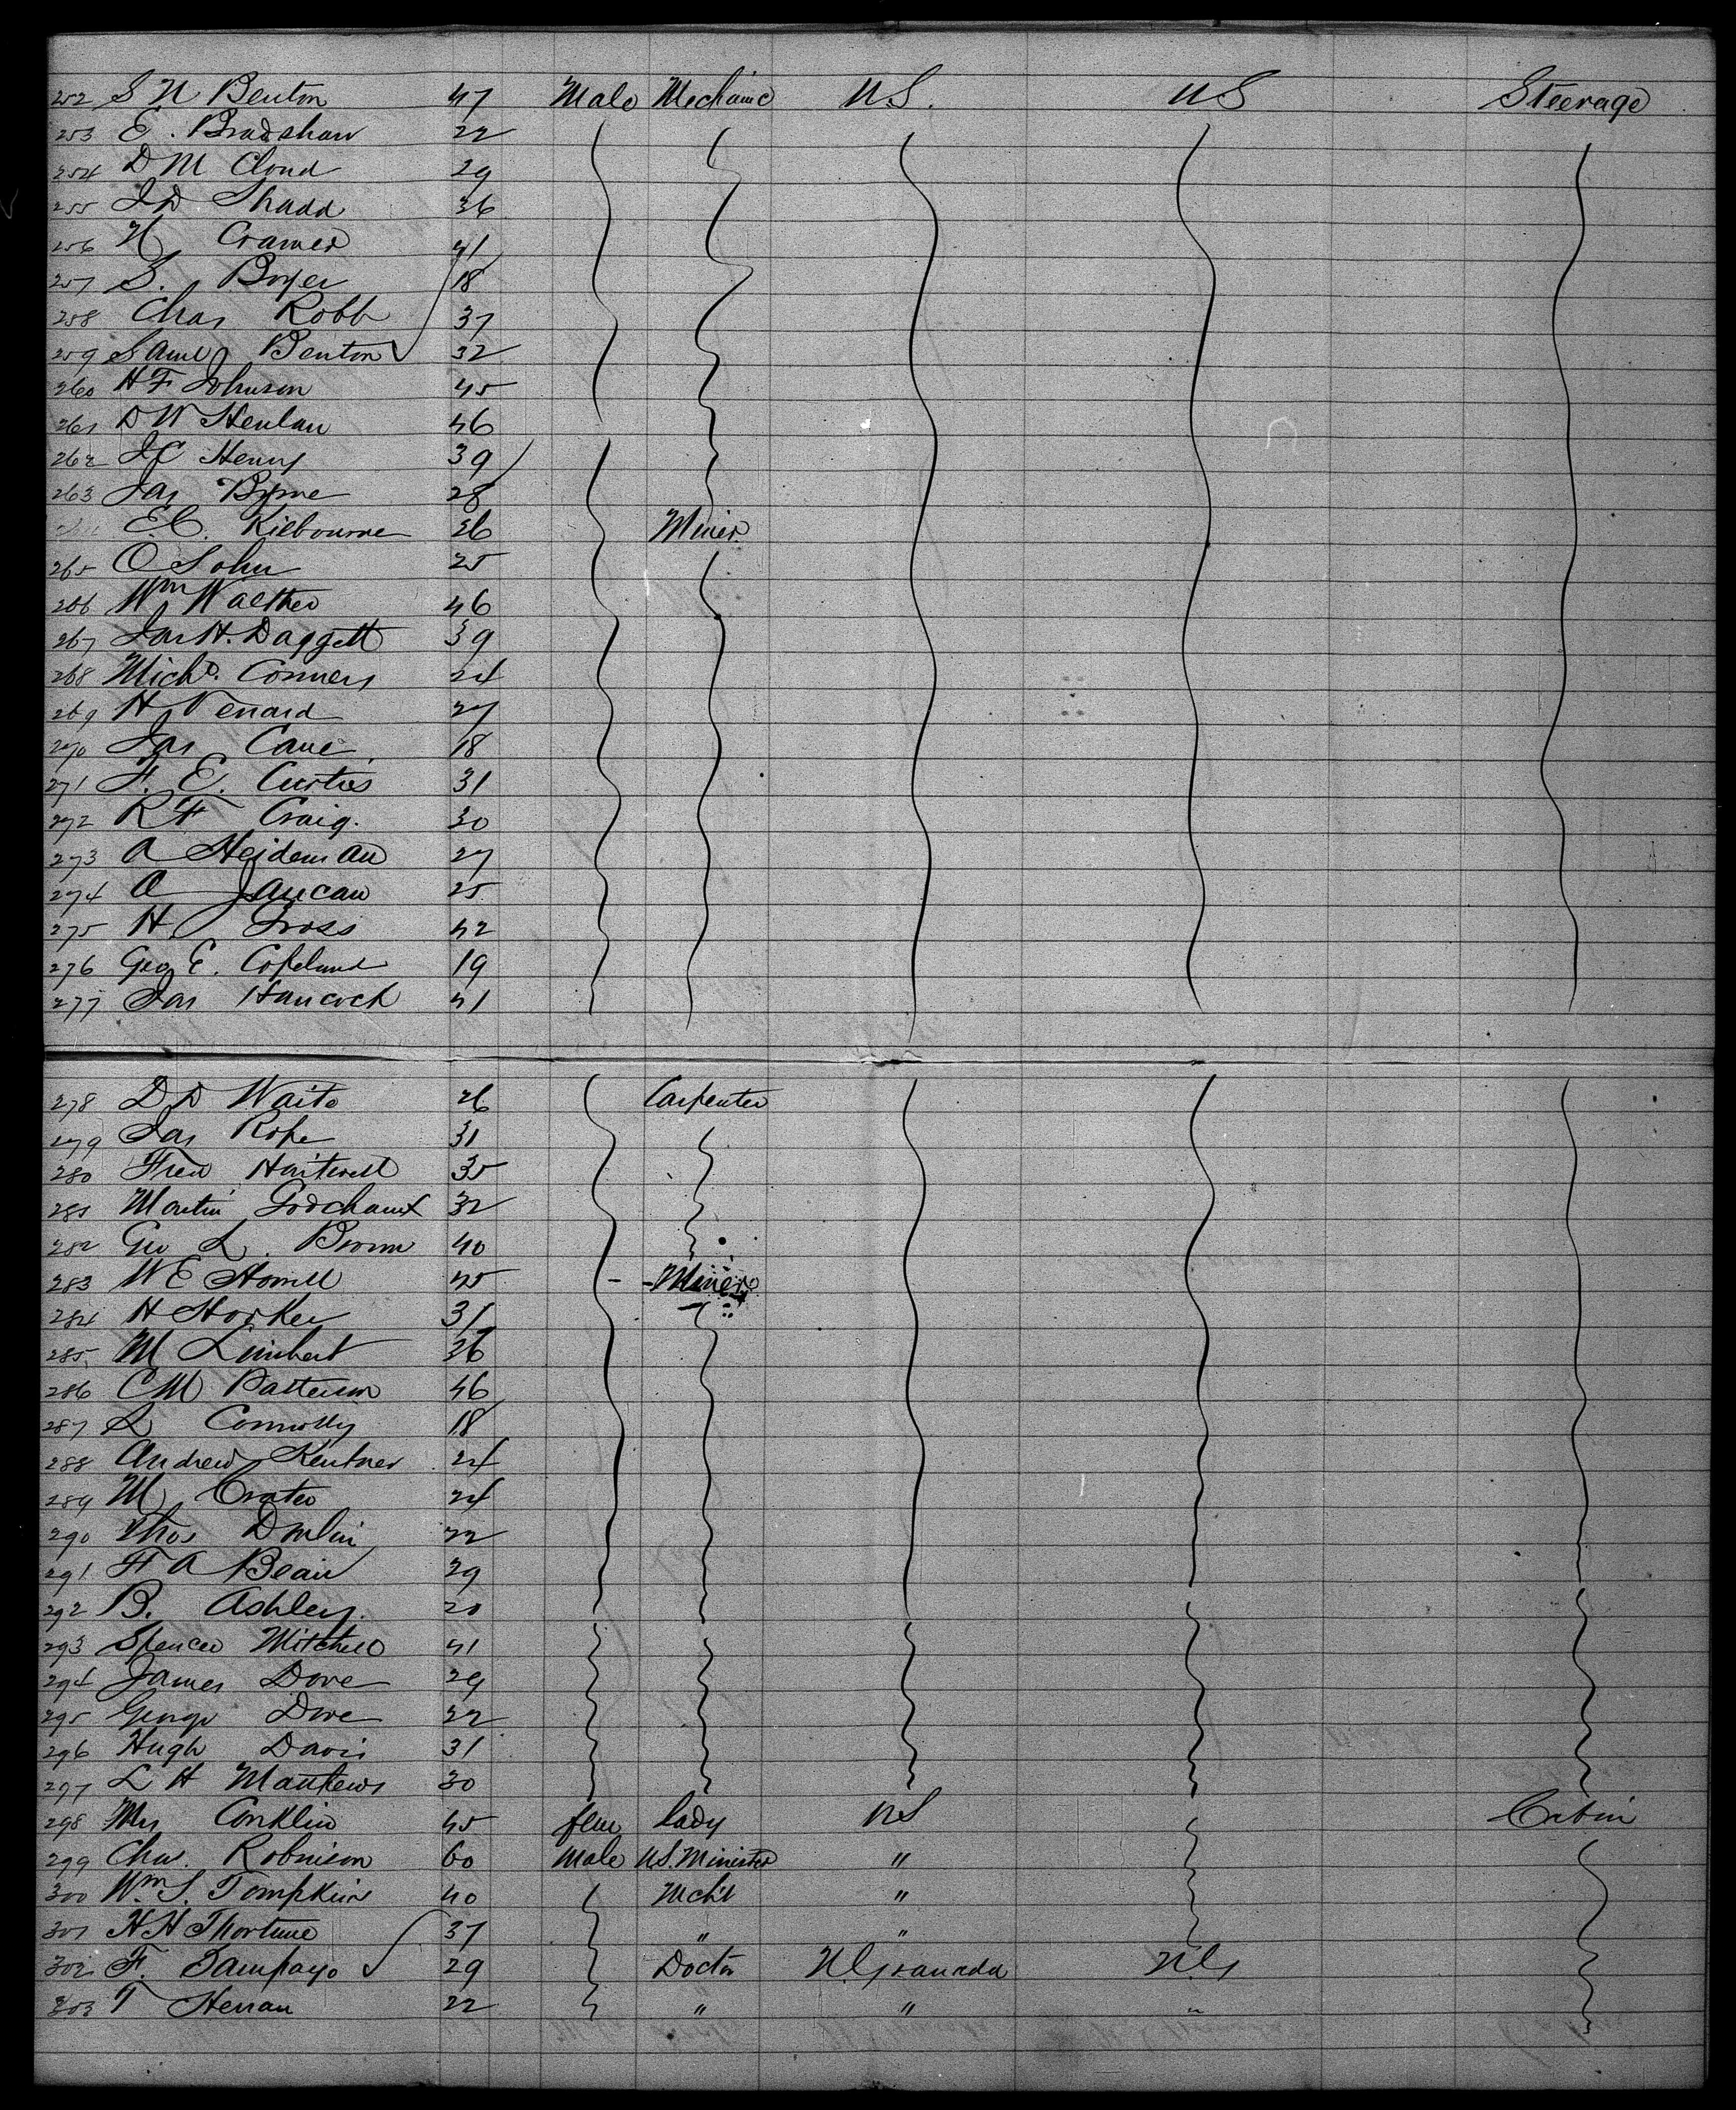 252 S N Benton 47 Male Mechanic U.S. US Steerage
253 E. Bradshaw 22
254 D M Cloud 29
255 J D Shadd 36
256 H Cramer 41
257 S. Boyer 18
258 Chas Robb 37
259 Saml Benton 32
260 H F Johnson 45
261 D W Henlan 46
262 J C Henry 39
263 Jas Byrne 28
E C. Kilbourne 26 Miner
265 O Sohn 25
266 Wm Walther 46
267 Jas H. Daggett 39
268 Michl. Conners 24
269 H Venard 27
270 Jas Cane 18
271 F. E. Curtis 31
272 R H Craig. 30
273 A Heideman 27
274 A Jancan 25
275 H Gross 42
276 Geo E. Copeland 19
277 Jas Hancock 41
278 D D Waite 26 Carpenter
279 Jas Rope 31
280 Fred Hartwell 35
281 Martin Godchaux 32
282 Geo L. Brown 40
283 W E Howell 45 Miner
284 H Horker 31
285 M Limbert 36
286 C M Patterson 46
287 L Connolly 18
288 Andrew Kentner 24
289 M Crater 24
290 Thos Devlin 22
291 F A Bean 29
292 B. Ashley. 20
293 Spencer Mitchell 41
294 James Dove 29
295 George Dove 22
296 Hugh Davis 31
297 L H Mathews 30
298 Mrs Conklin 45 fem lady US Cabin
299 Chas. Robinson 60 Male U.S. Minister "
300 Wm S. Tompkins 40 Mcht "
301 H H 37 " "
302 F. Tampayo 29 Doctor N. Granada N.G
303 T Herran 22 " " "